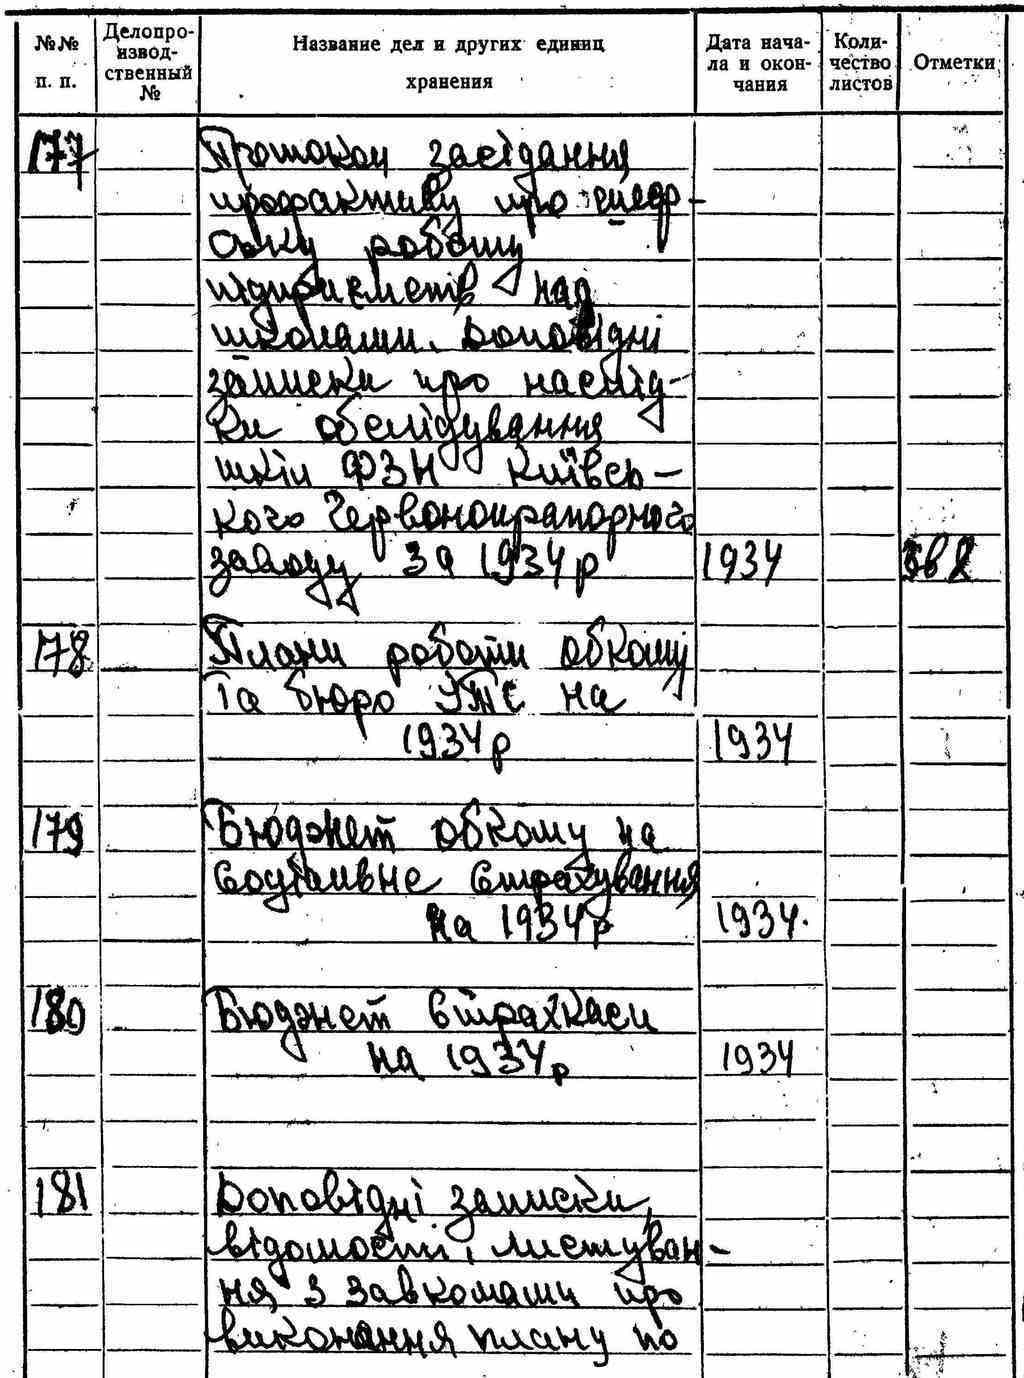 №№ п. п.
Делопро-
извод-
ственный
№
Название дел и других единиц
хранения
Дата нача-
ла и окон-
чания
Коли-
чество
листов
Отметки
177
Протокол засідання
профактиву про шефр-
ську роботу
підприємств над
школами. Доповідні
записки про наслід-
ки обслідування
шкіл ФЗН Київсь-
кого Червонопрапорного
заводу за 1934 р 1934
178 Плани роботи обкому
та бюро УТС на
1934 р 1934
179 Бюджет обкому на
соціальне страхування
на 1934 р 1934.
180 Бюджет страхкаси
на 1934 р 1934
181 Доповідні записки,
відомості, листуван-
ня з завкомами про
виконання плану по